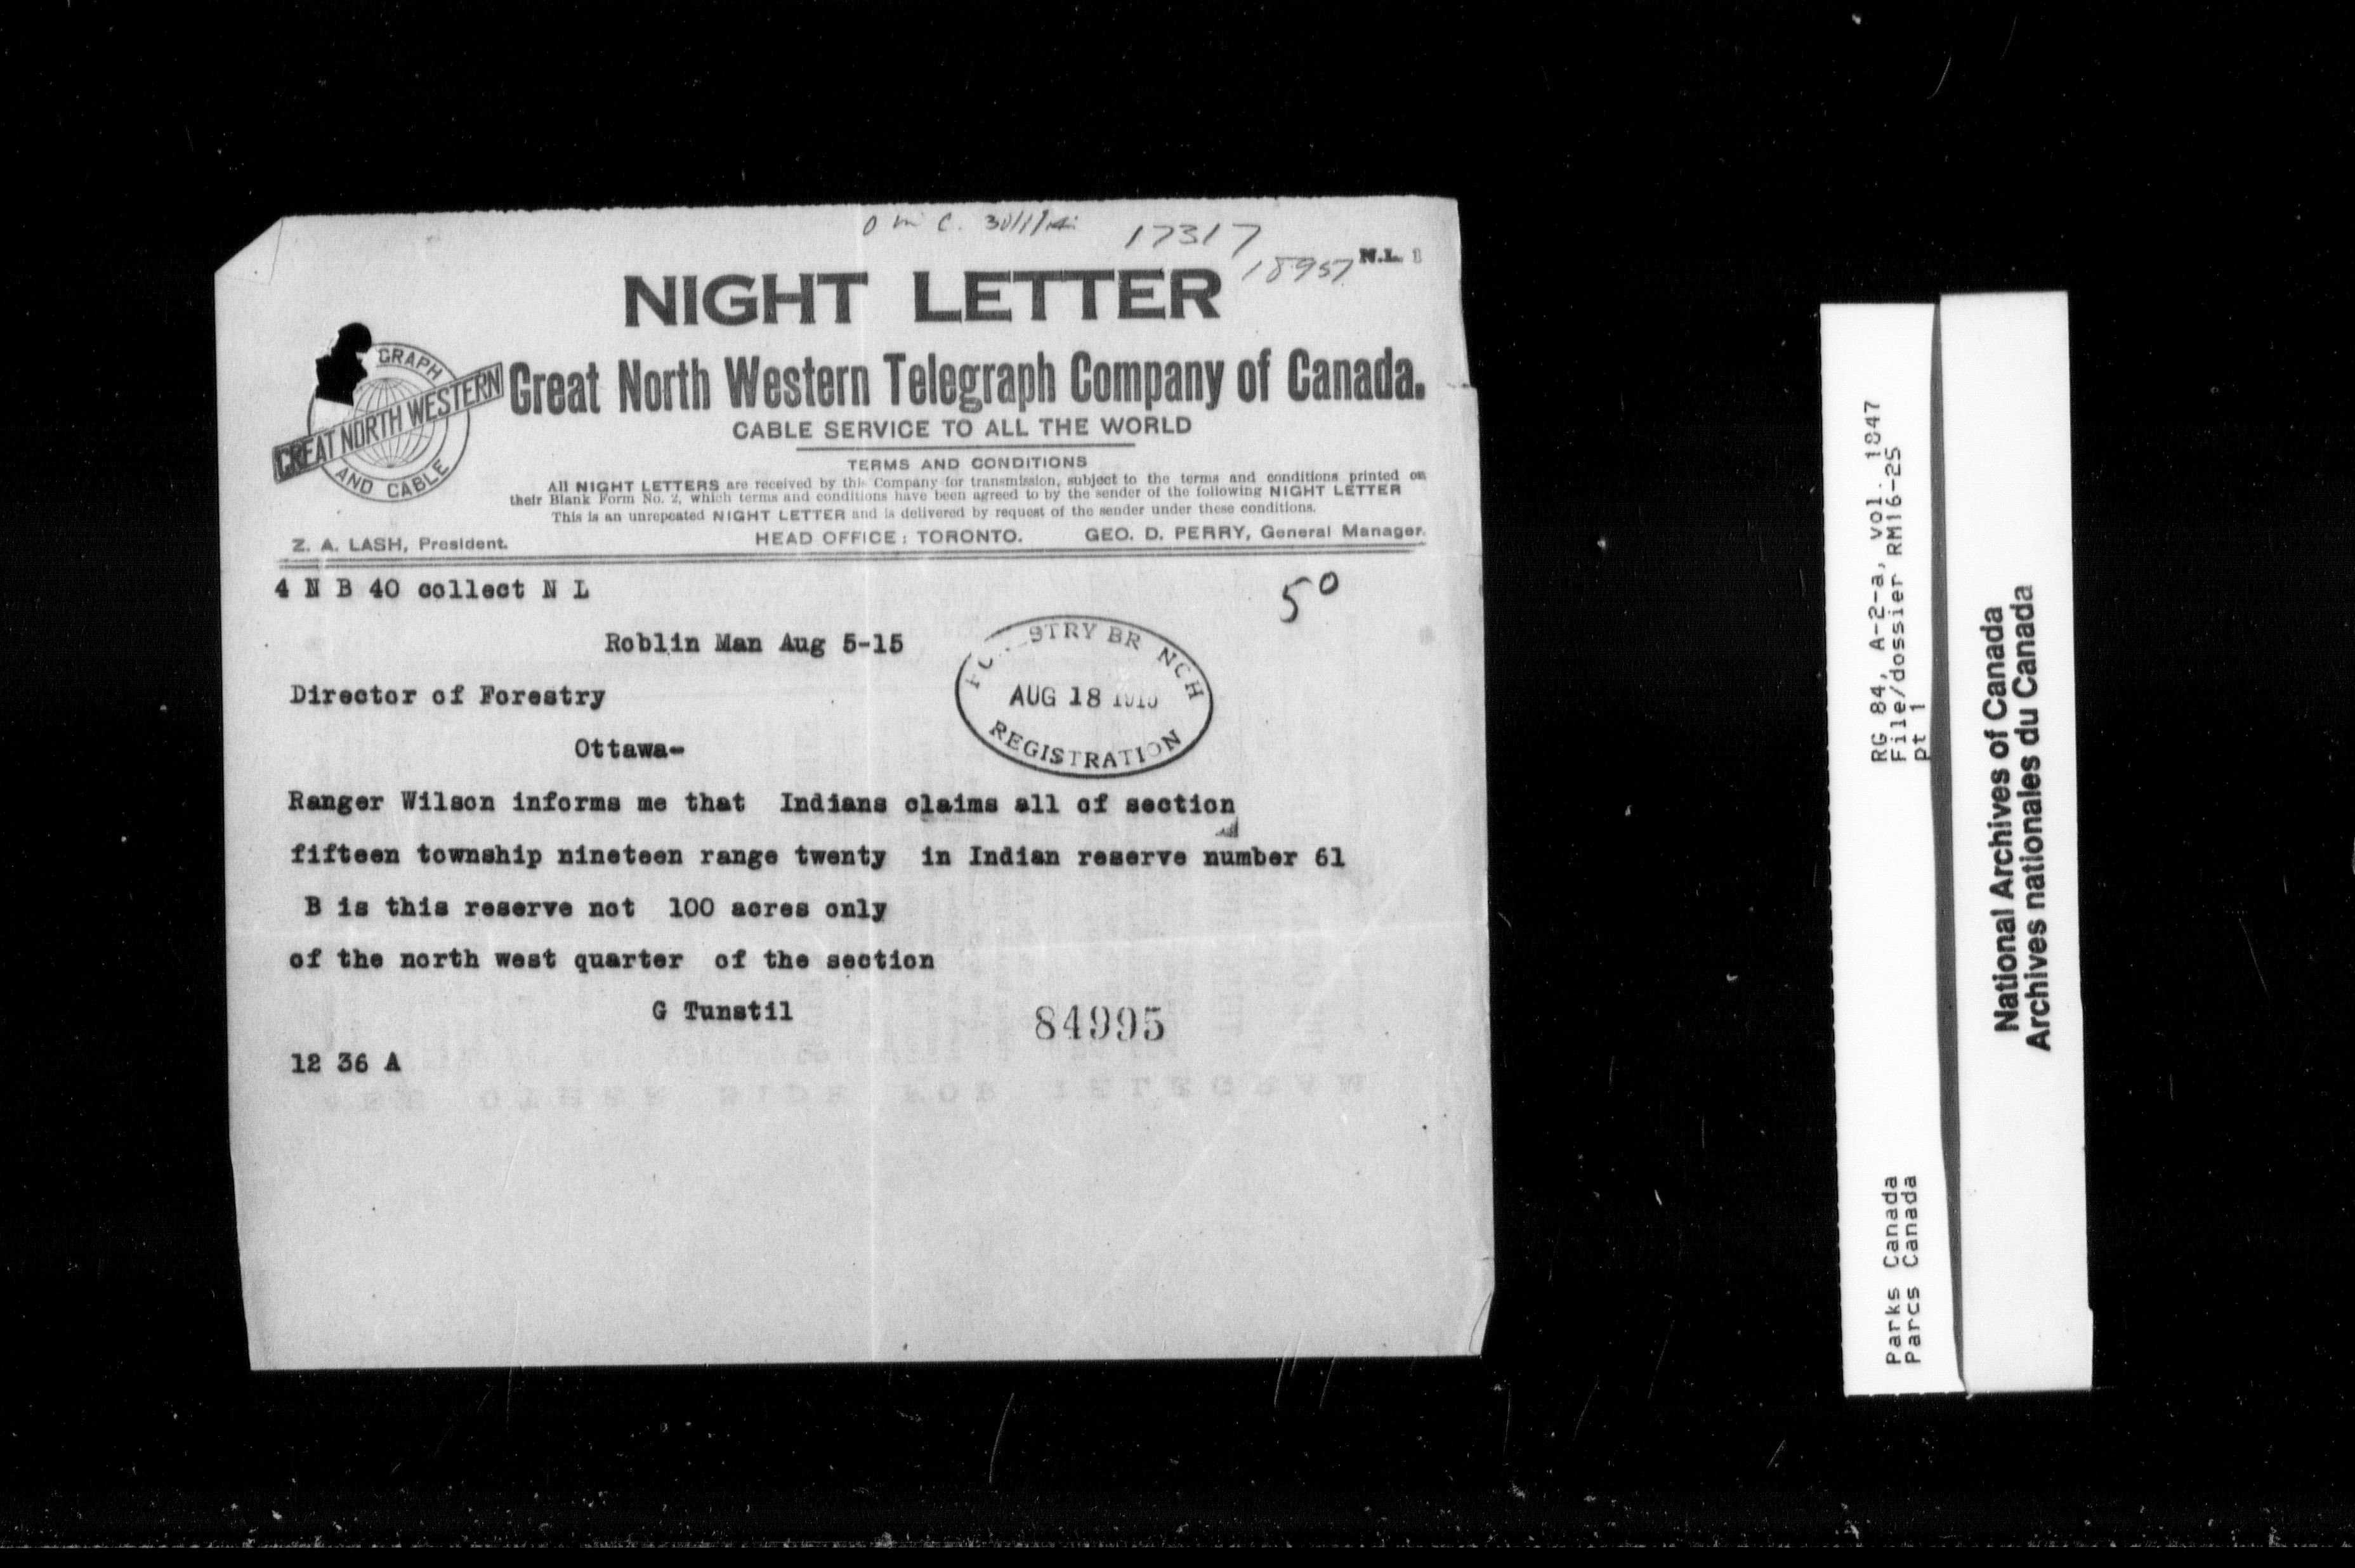 17317
18957
N.L. 1
NIGHT LETTER
GRAPH
GREAT NORTH WESTERN
AND CABLE
Great North Western Telegraph Company of Canada.
CABLE SERVICE TO ALL THE WORLD
TERMS AND CONDITIONS
All NIGHT LETTERS are received by this Company for transmission, subject to the terms and conditions printed on
their Blank Form No. 2, which terms and conditions have been agreed to by the sender of the following NIGHT LETTER
This is an unrepeated NIGHT LETTER and is delivered by request of the sender under these conditions.
Z. A. LASH, President. HEAD OFFICE: TORONTO. GEO. D. PERRY, General Manager.
4 N B 40 collect N L
50
Roblin Man Aug 5-15
STRY BR NCH
AUG 18
REGISTRATION
Director of Forestry
Ottawa-
Ranger Wilson informs me that Indians claims all of section
fifteen township nineteen range twenty in Indian reserve number 61
B is this reserve not 100 acres only
of the north west quarter of the section
G Tunstil
84995
12 36 A
RG 84, A-2-a, vol. 1847
File/dossier RM16-25
pt 1
Parks Canada
Parcs Canada
National Archives of Canada
Archives nationales du Canada